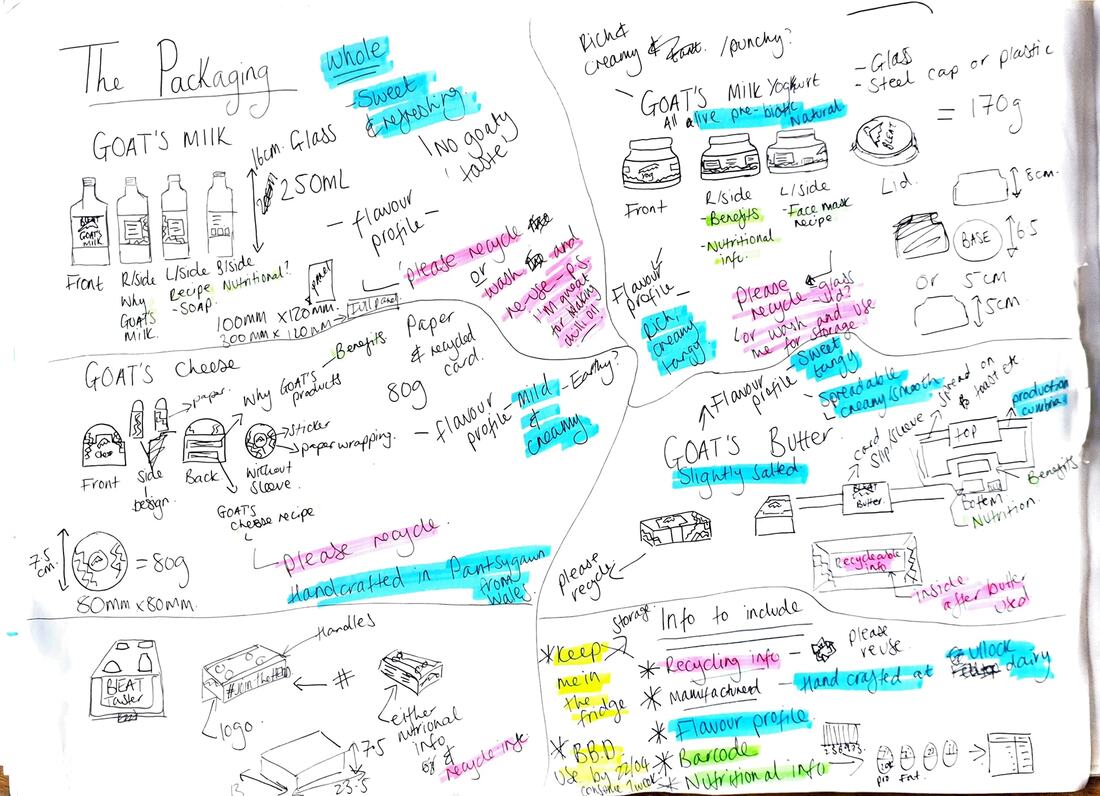 The Packaging
Whole
- Sweet
& refreshing.
'No goaty
taste'
GOAT'S MILK
16cm. Glass
250ML
- flavour
profile -
BLEAT
GOATS
MILK
Front
R/side
Why
GOAT'S
MILK.
L/side
Recipe
- SOAP.
B/side
Nutritional?
100MM x 120mm.
300mm x 120mm
panel
full panel
please recycle
or
wash and
re-use - P.S.
I'm great
for making
chilli oil!
Rich &
creamy & /punchy?
GOAT'S MILK Yoghurt
All alive pre-biotic
Natural
- Glass
- Steel cap or plastic
= 170g
BLEAT
Lid.
Front
R/side
- Benefits
- Nutritional
info.
L/side
- Face mask
recipe
8cm.
BASE
6.5
or 5cm
5cm.
Flavour
profile -
Rich,
creamy
tangy
Please
recycle glass
lid?
or wash and use
me for storage
GOAT'S Cheese
paper.
Why GOAT'S
products
Benefits
Paper
& recycled
card.
80g
- flavour
profile -
Mild
&
creamy
- Earthy?
Front
Side
design.
Back
sticker
paper wrapping.
Without
sleeve.
GOAT'S
cheese recipe
Please recycle.
7.5
cm.
= 80g
80mm x 80mm.
Handcrafted in Pantsygawn
from
Wales
Flavour
profile -
Sweet
tangy
- Spreadable
creamy/smooth
spread on
toast etc
production
cumbria
GOAT'S Butter
Slightly salted.
card
slip sleeve
BLEAT
Butter.
top
bottom
Benefits
Nutrition
please
recycle
Recycleable
info
inside
after butter
used
BLEAT
Taster
Handles
#JoinTheHerd
#
logo.
either
nutrional
info
or &
recycle info
7.5
13
23.5
storage.
Info to include
* Keep
me in
the
fridge
* B.B.D.
use by 22/04
consume 2 weeks
* Recycling info
please
reuse.
* Manufactured - Hand crafted at Gullock
dairy
* Flavour profile.
* Barcode
* Nutritional info